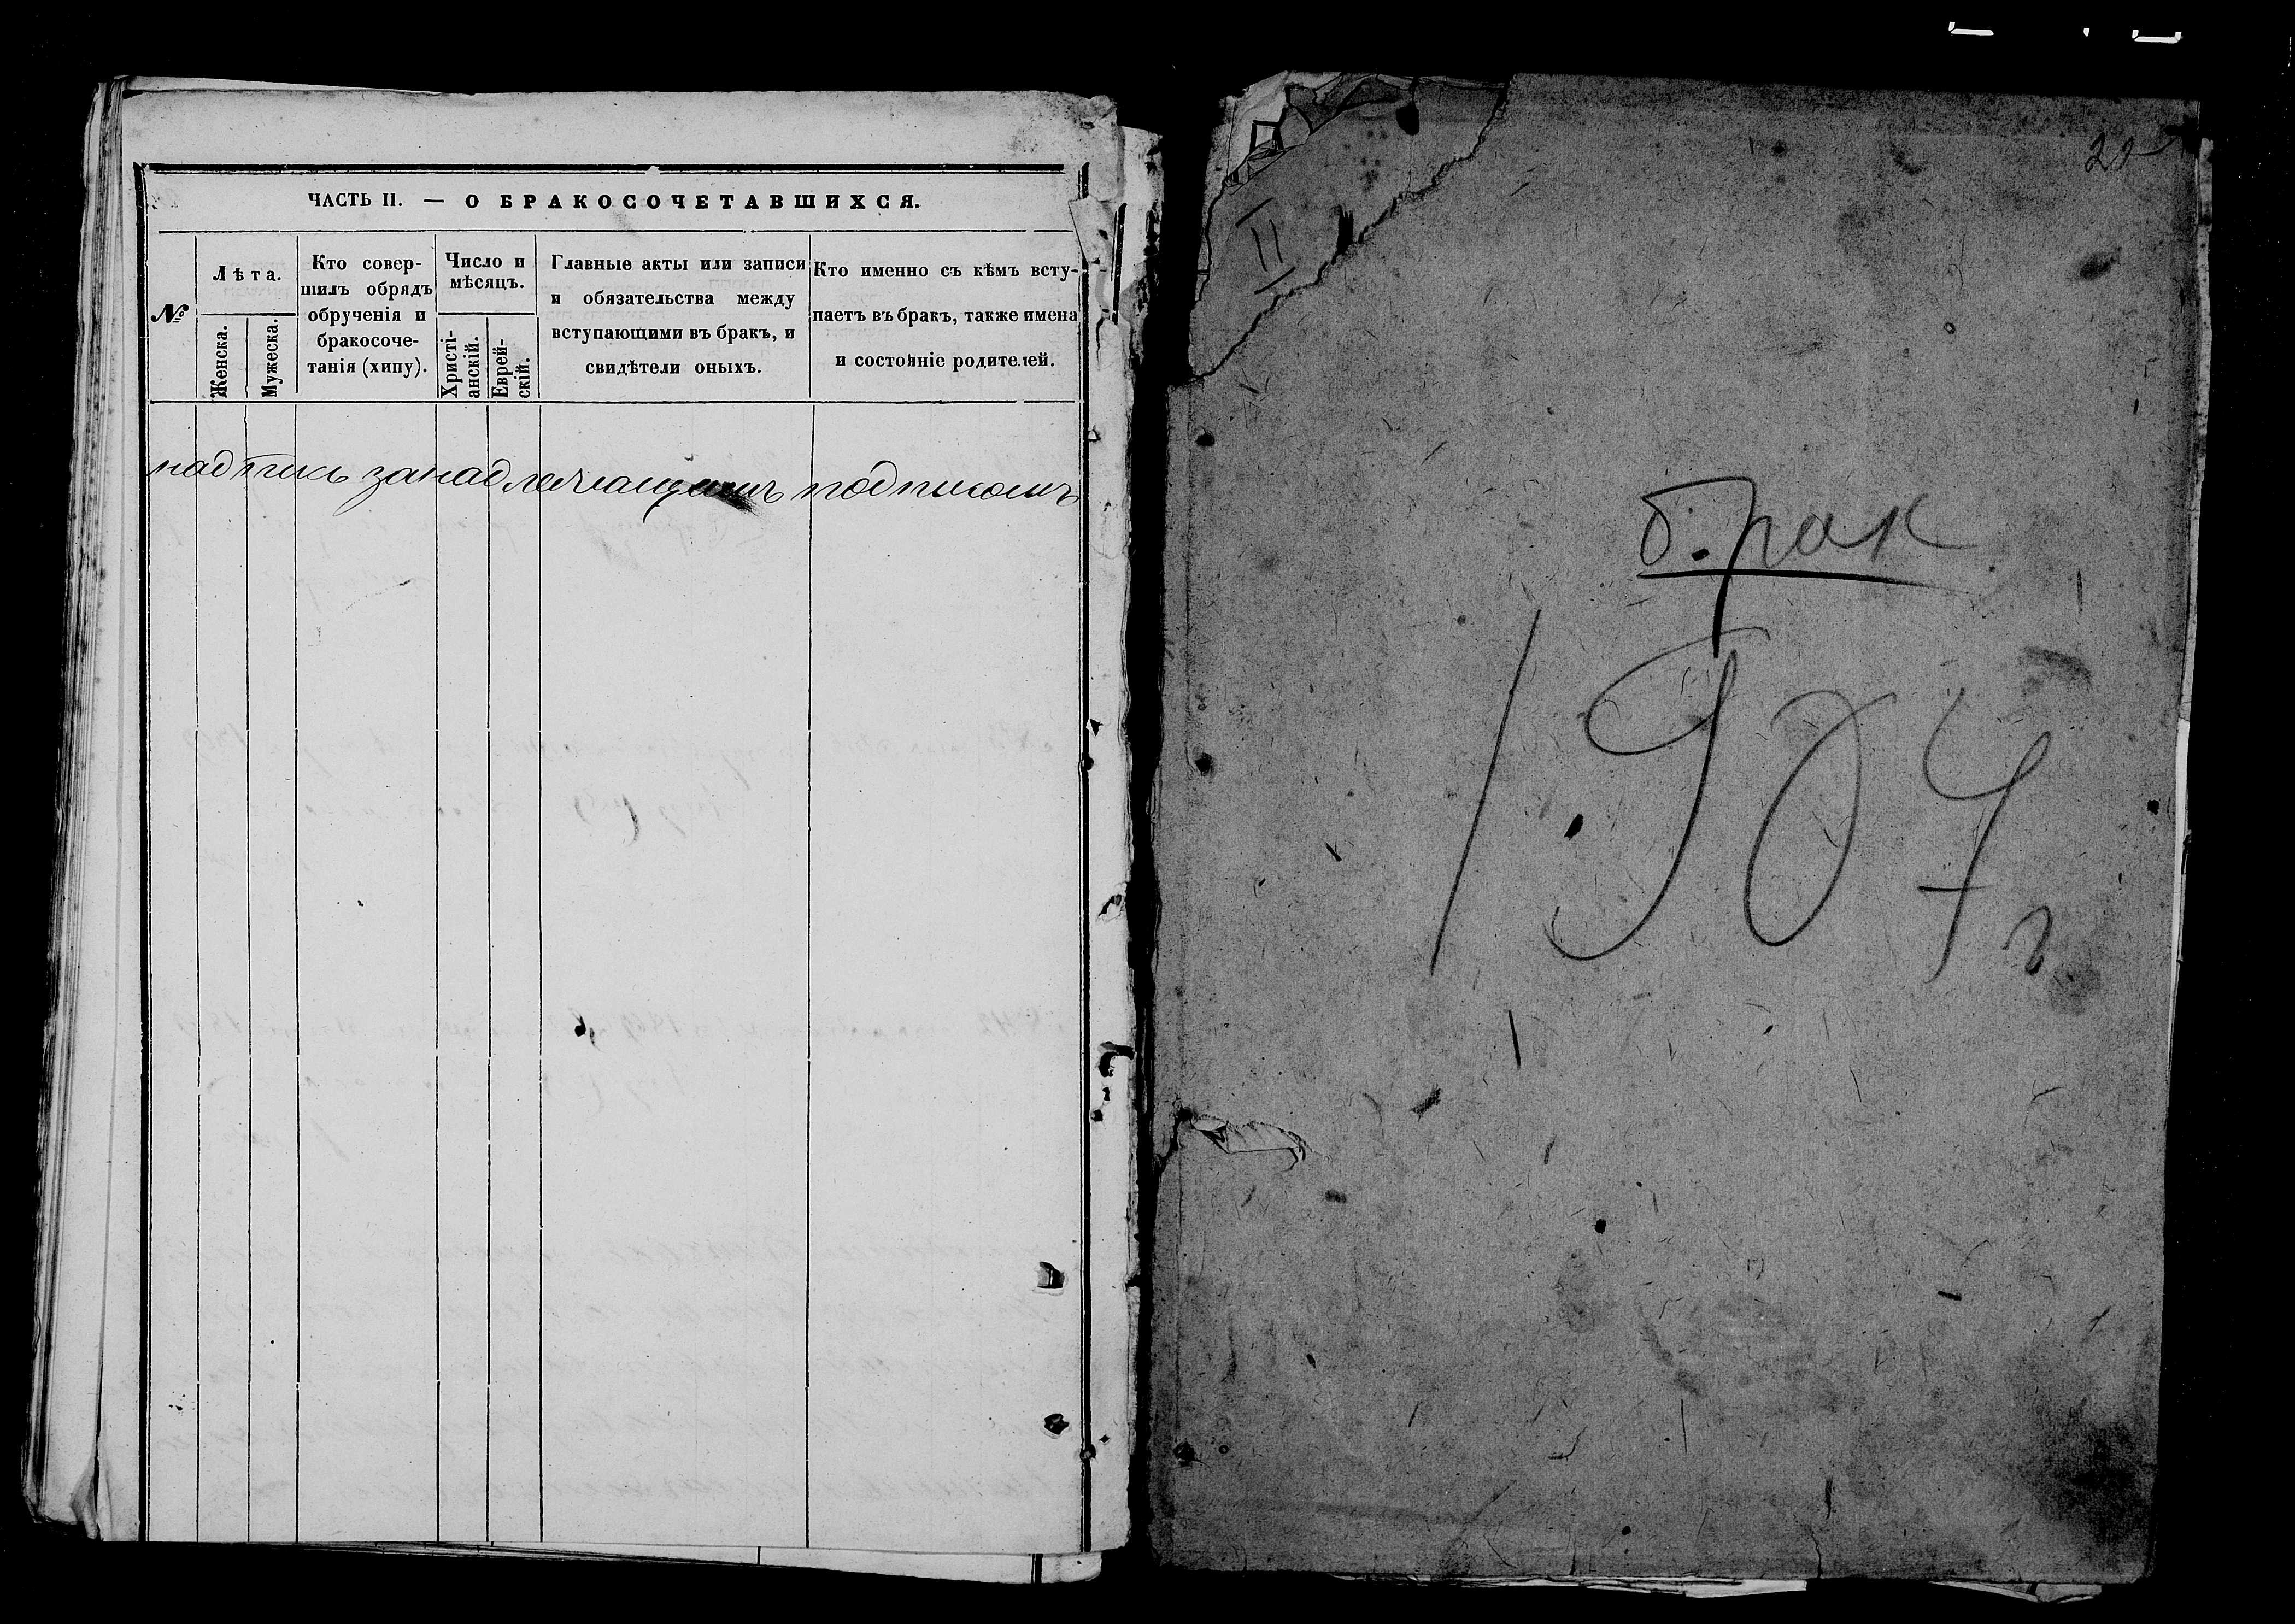 ЧАСТЬ II. — О БРАКОСОЧЕТАВШИХСЯ.
№
Лѣта.
Женска.
Мужеска.
Кто совер-
шилъ обрядъ
обрученія и
бракосоче-
танія (хипу).
Число и
мѣсяцъ.
Христі-
анскій.
Еврей-
скій.
Главные акты или записи
и обязательства между
вступающими въ бракъ, и
свидѣтели оныхъ.
Кто именно съ кѣмъ всту-
паетъ въ бракъ, также имена
и состояніе родителей.
надпись занадлежащимъ подписомъ
II
брак
1904 г